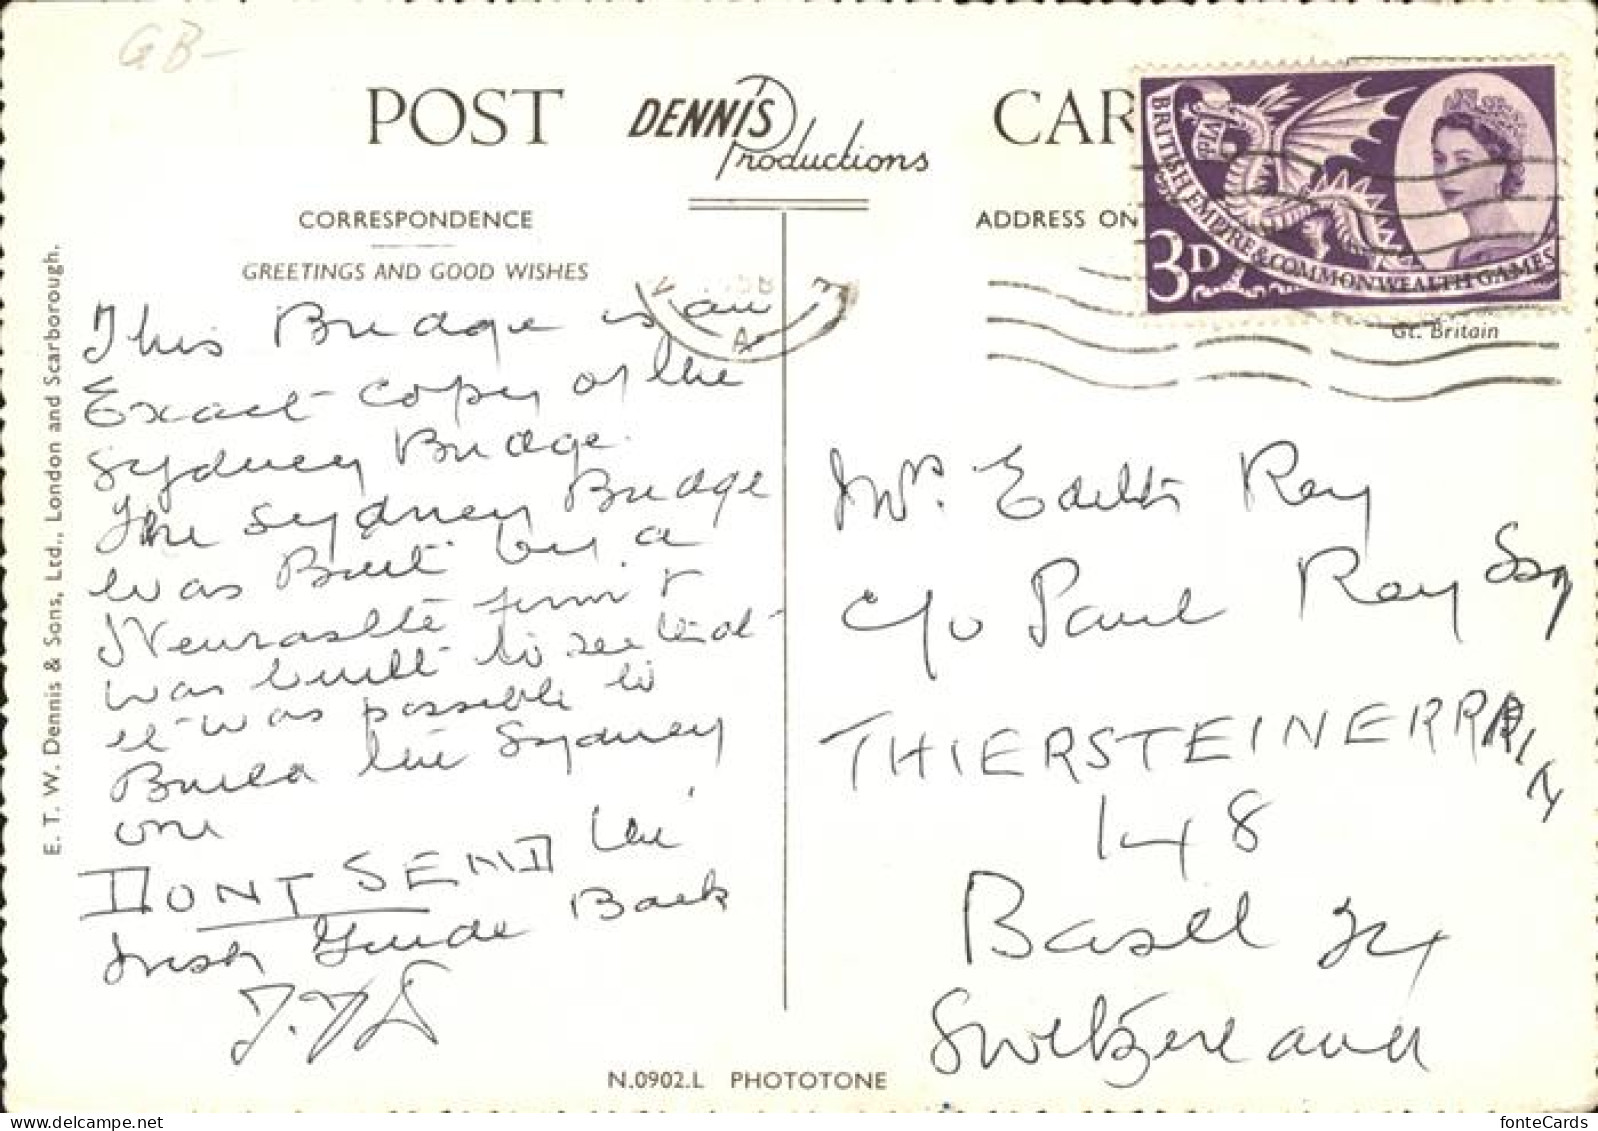 GB-
POST CAR
DENNIS
Productions
CORRESPONDENCE
GREETINGS AND GOOD WISHES
ADDRESS ON
BRITISH EMPIRE & COMMONWEALTH GAMES
3D
Gt. Britain
A
This Bridge is an
Exact copy of the
Sydney Bridge.
The Sydney Bridge
was Built by a
Newcastle firm &
was built to see that
it was possible to
Build the Sydney
one
DONT SEND the
Irish Guide Back
Mr. Edith Ray
c/o Paul Ray Esq
THIERSTEINERRAIN
148
Basel 24
Switzerland
E. T. W. Dennis & Sons, Ltd., London and Scarborough.
N.0902.L PHOTOTONE
fonteCards